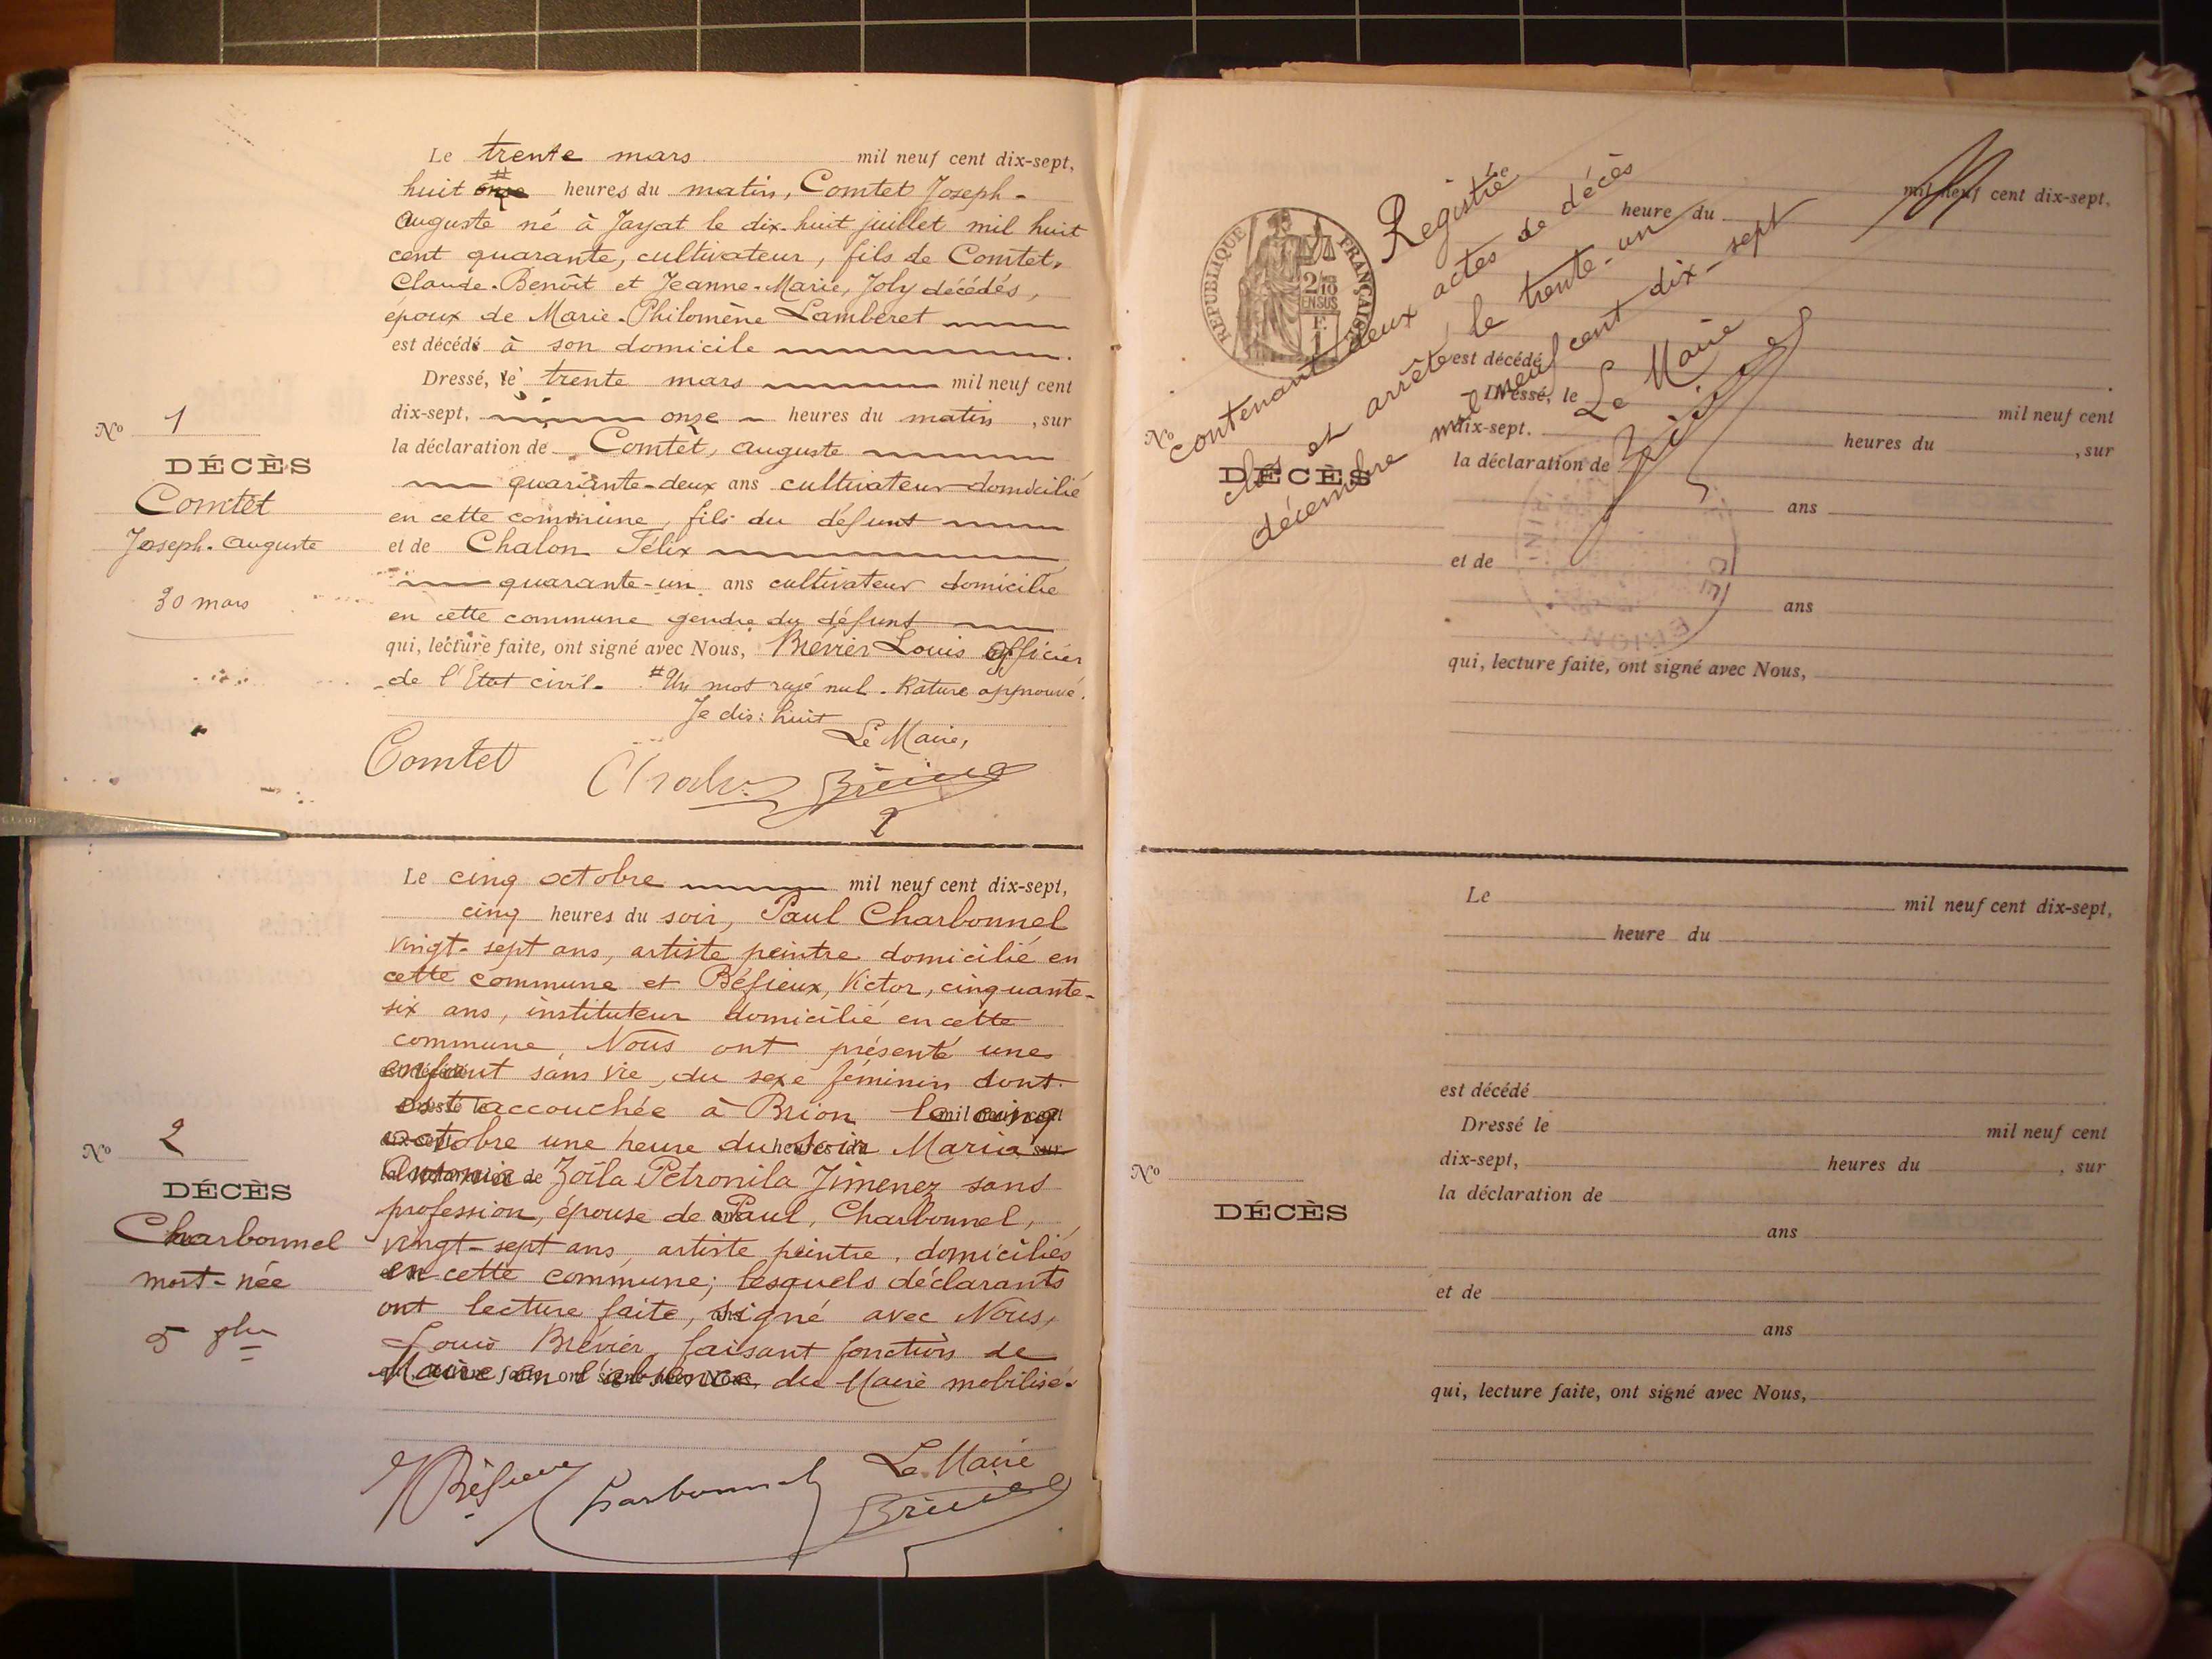 Le trente mars mil neuf cent dix-sept,
huit # onze heures du matin, Comtet Joseph-
Auguste né à Jayat le dix-huit juillet mil huit
cent quarante, cultivateur, fils de Comtet,
Claude-Benoît et Jeanne-Marie, Joly décédés,
époux de Marie-Philomène Lamberet
est décédé à son domicile .
Dressé, le trente mars mil neuf cent
dix-sept, onze heures du matin , sur
la déclaration de Comtet, Auguste
quarante-deux ans cultivateur domicilié
en cette commune, fils du défunt
et de Chalon Félix
quarante-un ans cultivateur domicilié
en cette commune gendre du défunt
qui, lecture faite, ont signé avec Nous, Brévier Louis Officier
de l'Etat civil. # Un mot rayé nul. Rature approuvé.
Je dis: huit
Le Maire,
Comtet
No 1
DÉCÈS
Comtet
Joseph-Auguste
30 mars
Le cinq octobre mil neuf cent dix-sept,
cinq heures du soir, Paul Charbonnel
vingt-sept ans, artiste peintre domicilié en
cette commune et Béfieux, Victor, cinquante-
six ans, instituteur domicilié en cette
commune, Nous ont présenté une
enfant sans vie, du sexe féminin dont
est accouchée à Brion le cinq
octobre une heure du soir Maria
Zoïla Petronila Jimenez sans
profession, épouse de Paul, Charbonnel,
vingt-sept ans, artiste peintre, domiciliés
en cette commune; lesquels déclarants
ont lecture faite, signé avec Nous,
Louis Brévier, faisant fonctions de
Maire en l'absence du Maire mobilisé.
Le Maire
Béfieux
Charbonnel
No 2
DÉCÈS
Charbonnel
mort-née
5 8bre
RÉPUBLIQUE FRANÇAISE
2/10
EN SUS
F.
1
Registre
contenant deux actes de décès
clos et arrêté le trente-un
décembre mil neuf cent dix-sept
Le Maire
Le mil neuf cent dix-sept,
heure du
est décédé .
Dressé, le mil neuf cent
dix-sept. heures du , sur
la déclaration de
ans
et de
ans
qui, lecture faite, ont signé avec Nous,
No
DÉCÈS
Le mil neuf cent dix-sept,
heure du
est décédé
Dressé le mil neuf cent
dix-sept, heures du , sur
la déclaration de
ans
et de
ans
qui, lecture faite, ont signé avec Nous,
No
DÉCÈS